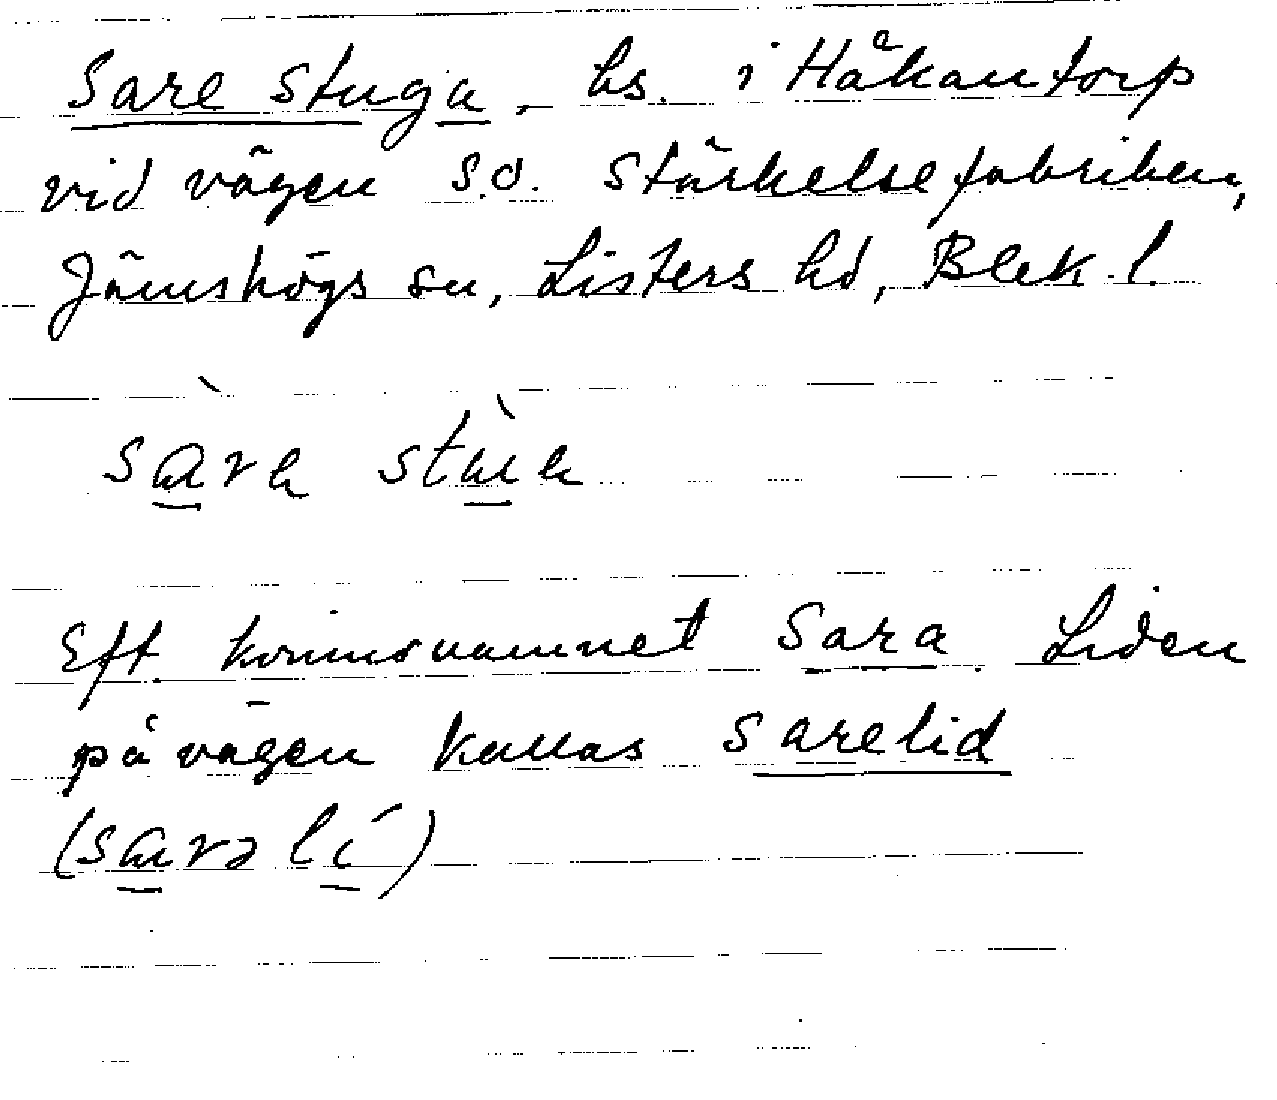 Sare stuga, hs. i Håkantorp
vid vägen s.o. stärkelsefabriken,
Jämshögs sn, Listers hd, Blek. l.
Eft. kvinnonamnet Sara. Liden
på vägen kallas Sarelid
(sarə lí)